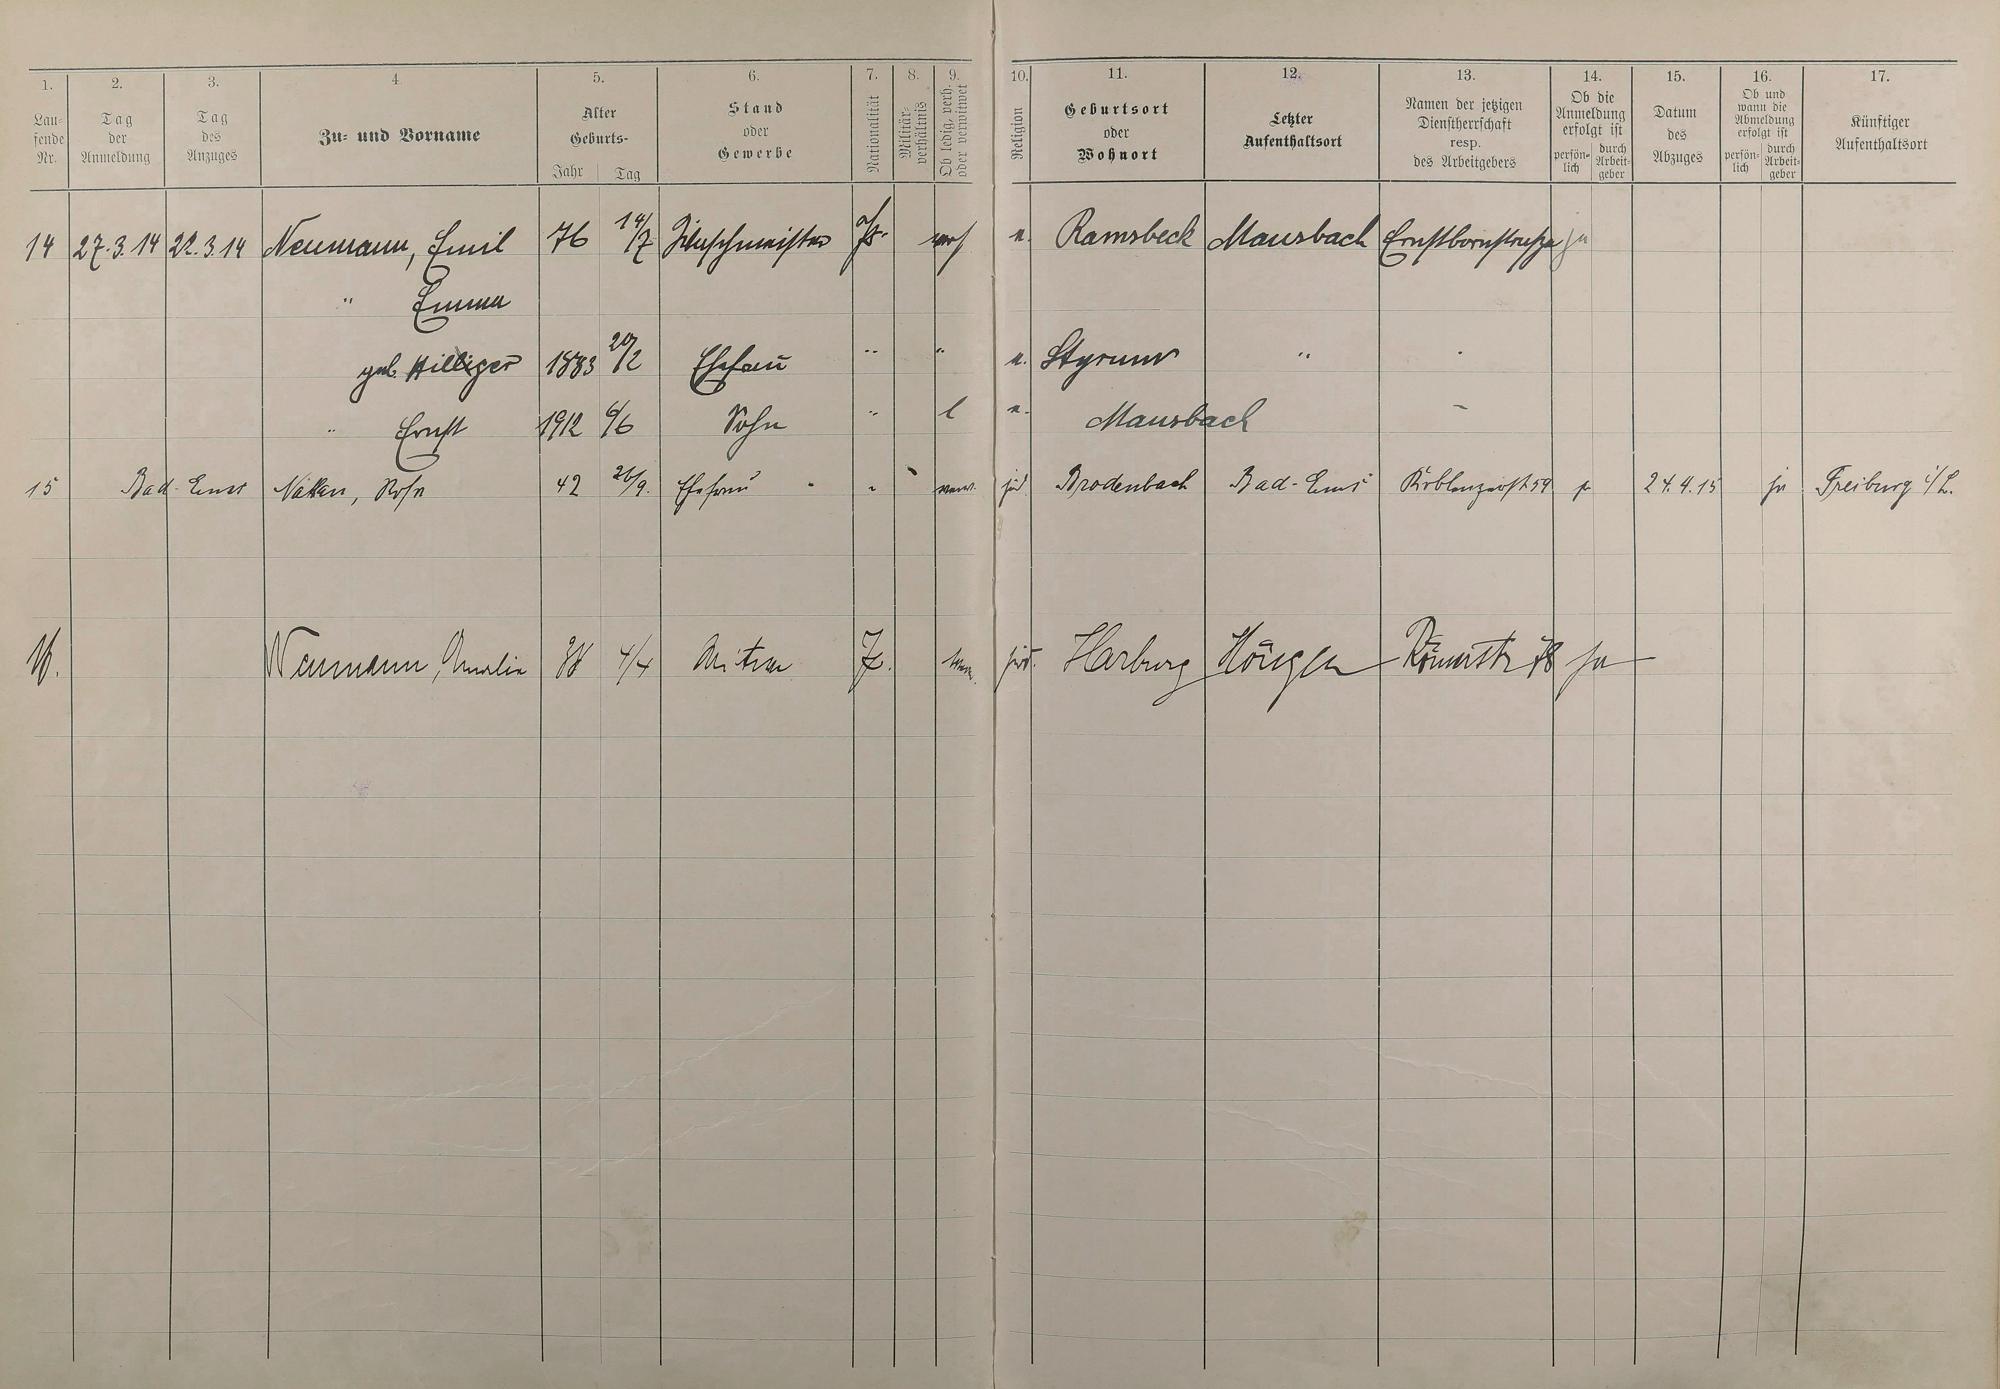 1. 2. 3. 4 5. 6. 7. 8. 9. 10. 11. 12. 13. 14. 15. 16. 17.
Lau-
fende
Nr.
Tag
der
Anmeldung
Tag
des
Anzuges
Zu- und Vorname
Alter
Geburts-
Jahr Tag
Stand
oder
Gewerbe
Nationalität
Militär-
verhältnis
Ob ledig, verh.
oder verwitwet
Religion
Geburtsort
oder
Wohnort
Letzter
Aufenthaltsort
Namen der jetzigen
Dienstherrschaft
resp.
des Arbeitgebers
Ob die
Anmeldung
erfolgt ist
persön-
lich
durch
Arbeit-
geber
Datum
des
Abzuges
Ob und
wann die
Abmeldung
erfolgt ist
persön-
lich
durch
Arbeit-
geber
Künftiger
Aufenthaltsort
14 27.3.14 22.3.14 Neumann, Emil 76 14/7 verh e. Ramsbeck Mausbach Ernstbornstraße ja
" Emma
geb. Hilliger 1883 20/2 Ehefrau " " e. Styrum "
" Ernst 1912 6/6 Sohn " l e. Mausbach
15 Bad-Ems Rosa 42 26/9. Ehefrau " verw. jüd. Brodenbach Bad-Ems Koblenzerstr. 59 ja 24.4.15 ja Freiburg
16. Neumann, Amalie 4/4 Witwe jüd. Harburg Römerstr 78 ja